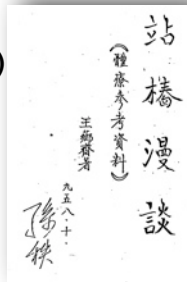 站樁漫談
(體療參考資料)
王薌齋著
九五八·十·
孫